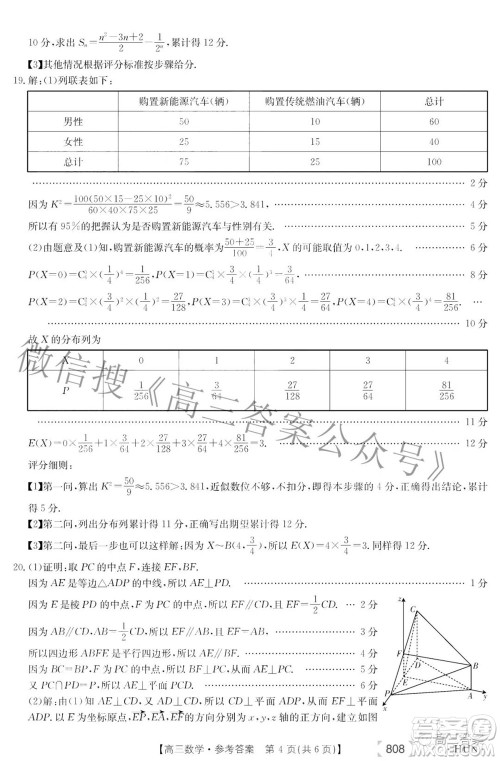 10 分，求出 Sₙ=(n²-3n+2)/2-1/2ⁿ，累计得 12 分.
【3】其他情况根据评分标准按步骤给分.
19. 解：(1)列联表如下：
购置新能源汽车(辆) 购置传统燃油汽车(辆) 总计
男性 50 10 60
女性 25 15 40
总计 75 25 100
2 分
因为 K²=100(50×15-25×10)²/(60×40×75×25)=50/9≈5.556>3.841， 4 分
所以有 95%的把握认为是否购置新能源汽车与性别有关. 5 分
(2)由题意及(1)知，购置新能源汽车的概率为(50+25)/100=3/4，X 的可能值为 0，1，2，3，4. 6 分
P(X=0)=C₄⁰×(1/4)⁴=1/256，P(X=1)=C₄¹×3/4×(1/4)³=3/64， 8 分
P(X=2)=C₄²×(3/4)²×(1/4)²=27/128，P(X=3)=C₄³×(3/4)³×1/4=27/64，P(X=4)=C₄⁴×(3/4)⁴=81/256.
10 分
故 X 的分布列为
X 0 1 2 3 4
P 1/256 3/64 27/128 27/64 81/256
11 分
E(X)=0×1/256+1×3/64+2×27/128+3×27/64+4×81/256=3. 12 分
评分细则：
【1】第一问，算出 K²=50/9≈5.556>3.841，近似数位不够，不扣分，累计得 4 分，正确得出结论，累计得 5 分.
【2】第二问，列出分布列累计得 11 分，正确写出期望累计得 12 分.
【3】第二问，最后一步写成“因为 X～B(4,3/4)，所以 E(X)=4×3/4=3”，同样得分.
20. (1)证明：取 PC 的中点 F，连接 EF，BF.
因为 AE 是等边△ADP 的中线，所以 AE⊥PD. 1 分
因为 E 是棱 PD 的中点，F 为 PC 的中点，所以 EF∥CD，且 EF=1/2CD. 2 分
因为 AB∥CD，AB=1/2CD，所以 EF∥AB，且 EF=AB，
所以四边形 ABFE 是平行四边形，所以 AE∥BF.
又 PC∩PD=P，所以 AE⊥平面 PCD. 5 分
(2)解：由(1)知，AE⊥CD，又
面 以 E 为坐标原点，
C
F
D
B
E
P
A
z
x
y
【高三数学·参考答案 第 4 页(共 6 页)】 808 HUN
微信搜《高三答案公众号》